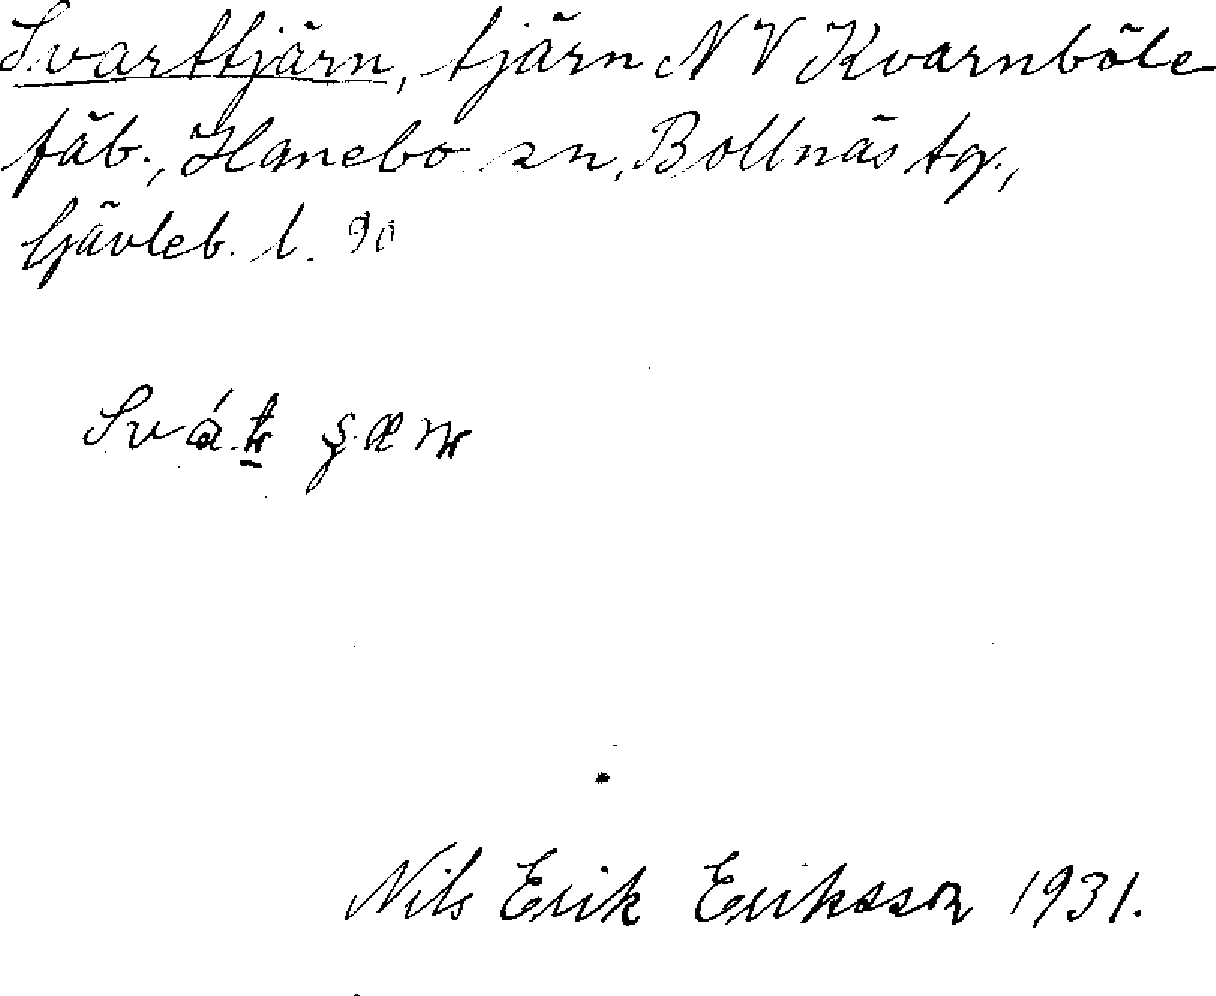 Svarttjärn, tjärn NV Kvarnböle
fäb., Hanebo sn, Bollnäs tg.,
Gävleb. l. 90
Nils Erik Eriksson 1931.